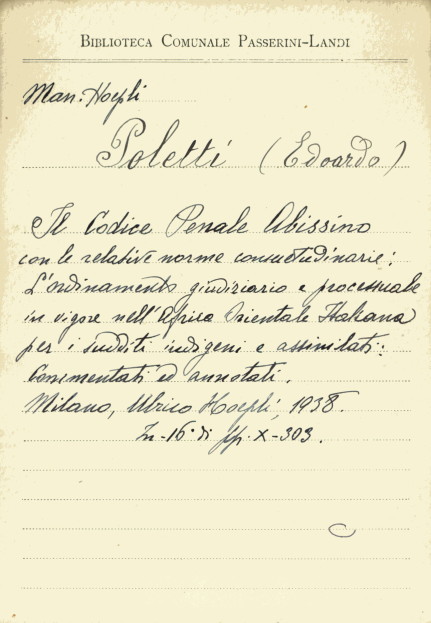 BIBLIOTECA COMUNALE PASSERINI-LANDI
Man. Hoepli
Poletti (Edoardo)
Il Codice Penale Abissino
con le relative norme consuetudinarie:
L'ordinamento giudiziario e processuale
in vigore nell'Africa Orientale Italiana
per i sudditi indigeni e assimilati:
Commentati ed annotati.
Milano, Ulrico Hoepli, 1938.
In-16° di pp. X-303.